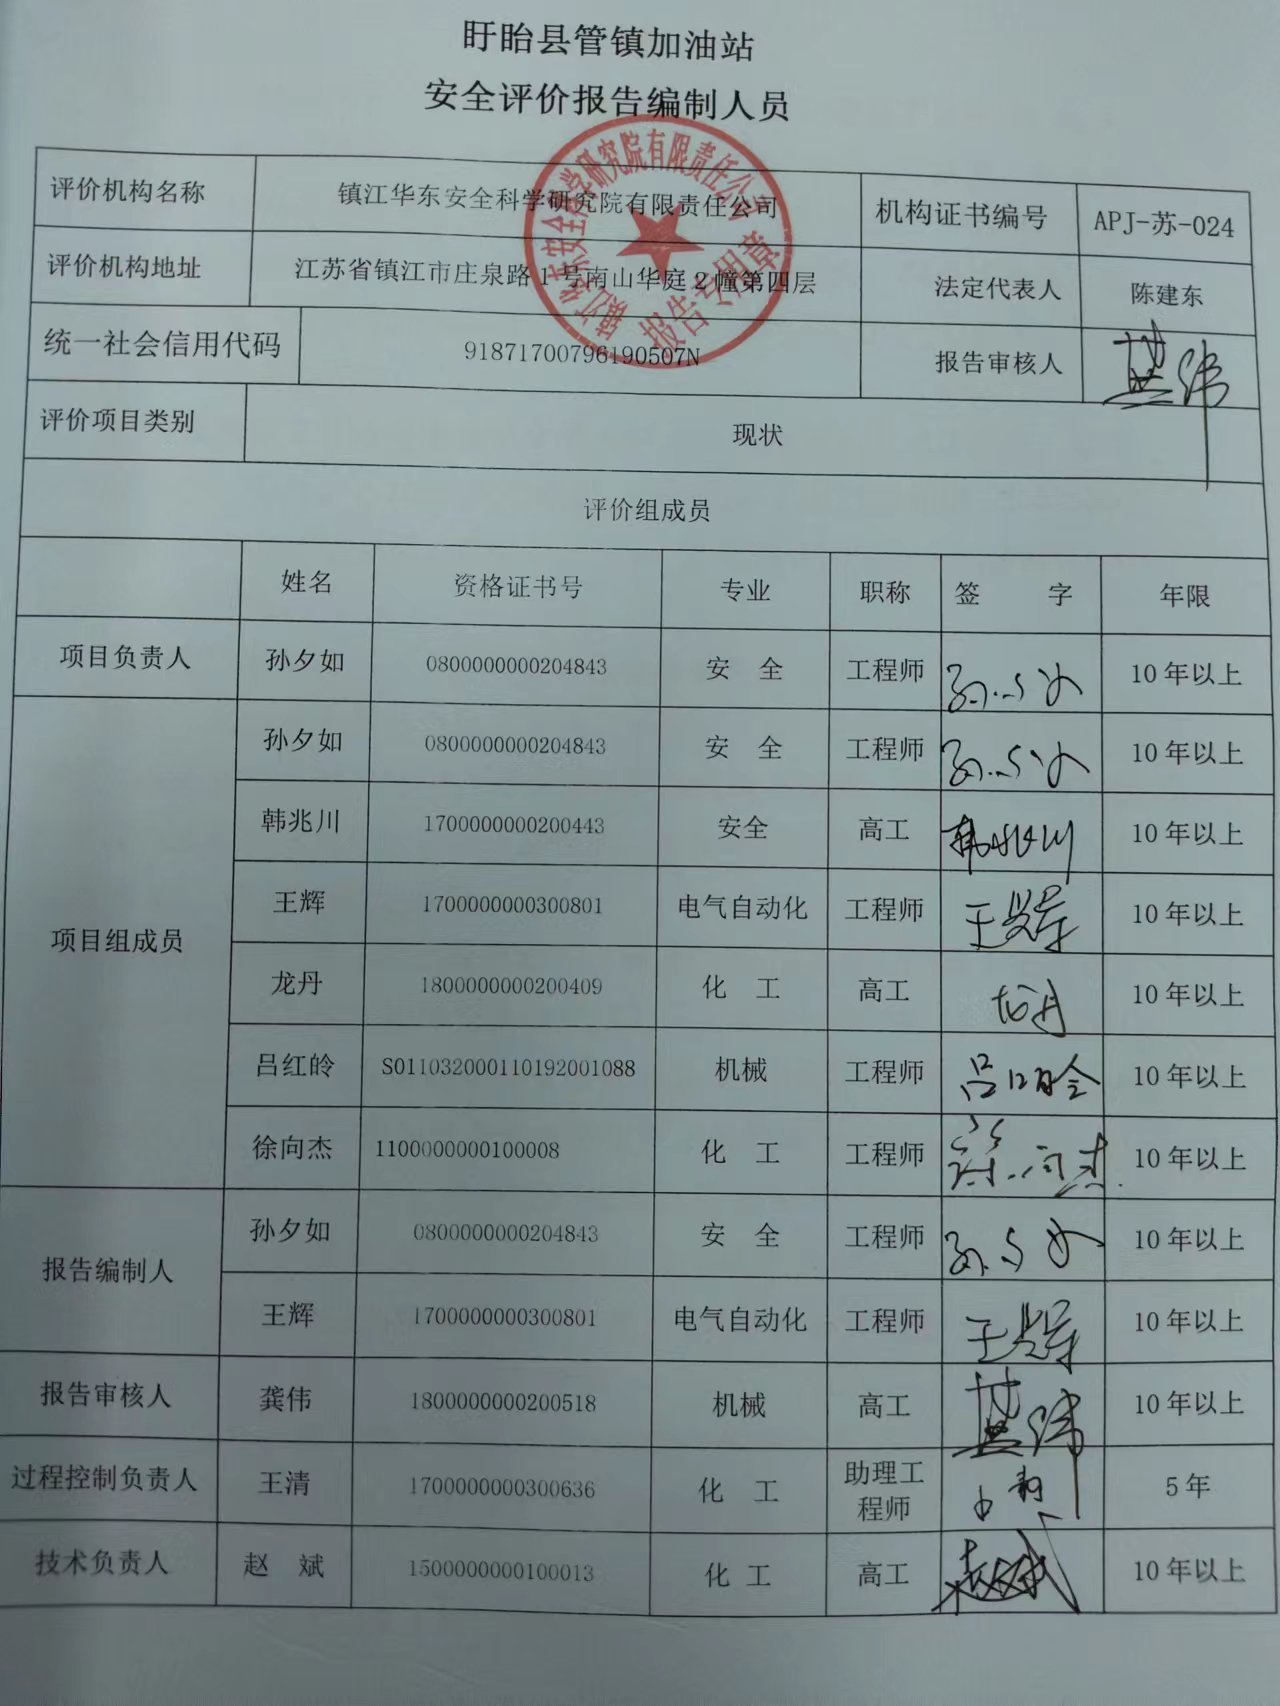 盱眙县管镇加油站
安全评价报告编制人员
评价机构名称 镇江华东安全科学研究院有限责任公司 机构证书编号 APJ-苏-024
评价机构地址 江苏省镇江市庄泉路1号南山华庭2幢第四层 法定代表人 陈建东
统一社会信用代码 91871700796190507N 报告审核人 龚伟
镇江华东安全科学研究院有限责任公司
报告专用章
评价项目类别 现状
评价组成员
姓名 资格证书号 专业 职称 签 字 年限
项目负责人 孙夕如 0800000000204843 安 全 工程师 孙夕如 10年以上
项目组成员
孙夕如 0800000000204843 安 全 工程师 孙夕如 10年以上
韩兆川 1700000000200443 安全 高工 韩兆川 10年以上
王辉 1700000000300801 电气自动化 工程师 王辉 10年以上
龙丹 1800000000200409 化 工 高工 龙丹 10年以上
吕红皊 S011032000110192001088 机械 工程师 10年以上
徐向杰 1100000000100008 化 工 工程师 徐向杰 10年以上
报告编制人
孙夕如 0800000000204843 安 全 工程师 孙夕如 10年以上
王辉 1700000000300801 电气自动化 工程师 王辉 10年以上
报告审核人 龚伟 1800000000200518 机械 高工 龚伟 10年以上
过程控制负责人 王清 1700000000300636 化 工 助理工程师 5年
技术负责人 赵 斌 1500000000100013 化 工 高工 赵斌 10年以上